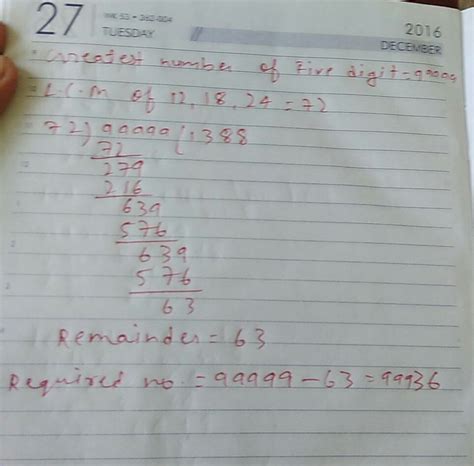 27
WK 53 - 362-004
TUESDAY
2016
DECEMBER
Greatest number of Five digit = 99999
L.C.M of 12, 18, 24 = 72
72) 99999 (1388
72
279
216
639
576
639
576
63
Remainder = 63
Required no. = 99999 - 63 = 99936